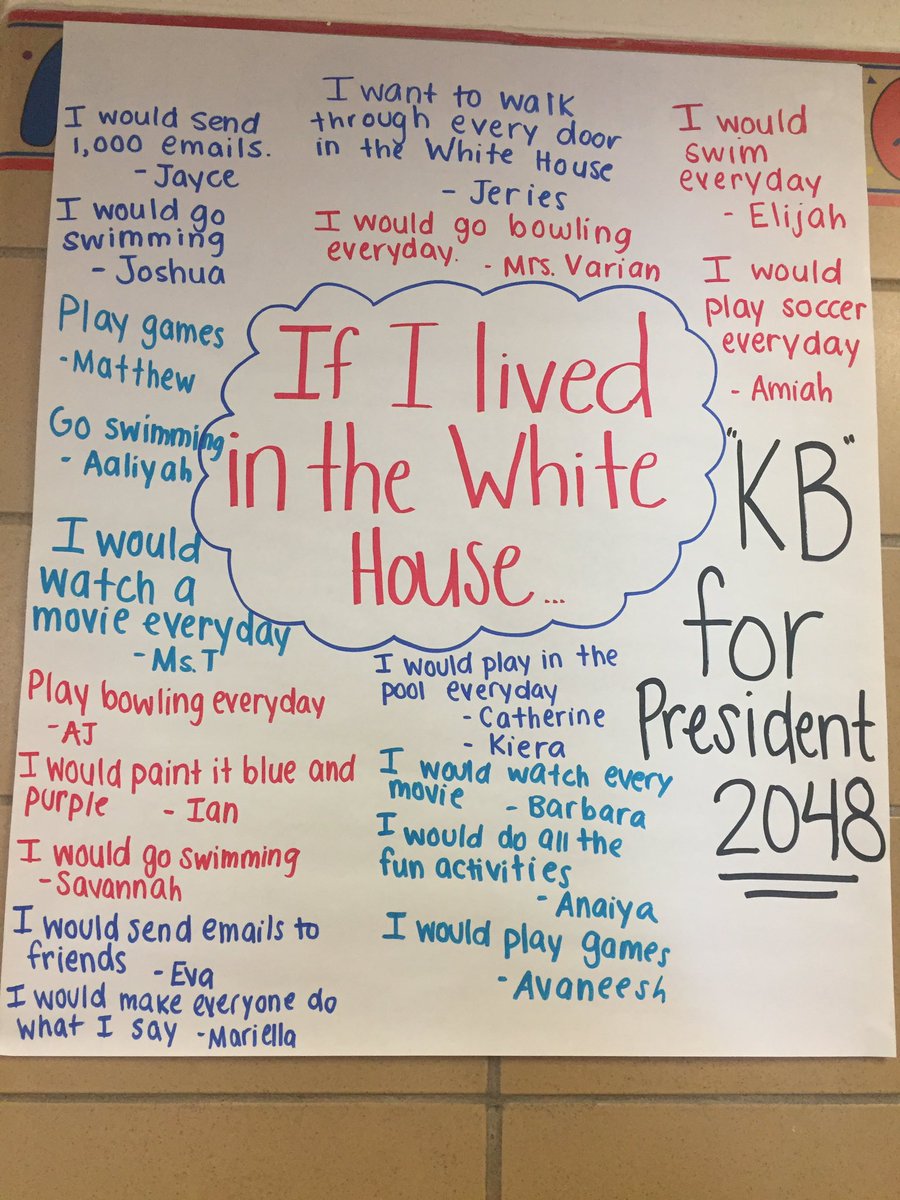 I would send
1,000 emails.
- Jayce
I would go
swimming
- Joshua
Play games
- Matthew
Go swimming
- Aaliyah
I would
watch a
movie everyday
- Ms. T
Play bowling everyday
- AJ
I would paint it blue and
purple - Ian
I would go swimming
- Savannah
I would send emails to
friends - Eva
I would make everyone do
what I say - Mariella
I want to walk
through every door
in the White House
- Jeries
I would go bowling
everyday. - Mrs. Varian
If I lived
in the White
House...
I would play in the
pool everyday
- Catherine
- Kiera
I would watch every
movie - Barbara
I would do all the
fun activities
- Anaiya
I would play games
- Avaneesh
I would
swim
everyday
- Elijah
I would
play soccer
everyday
- Amiah
"KB"
for
President
2048